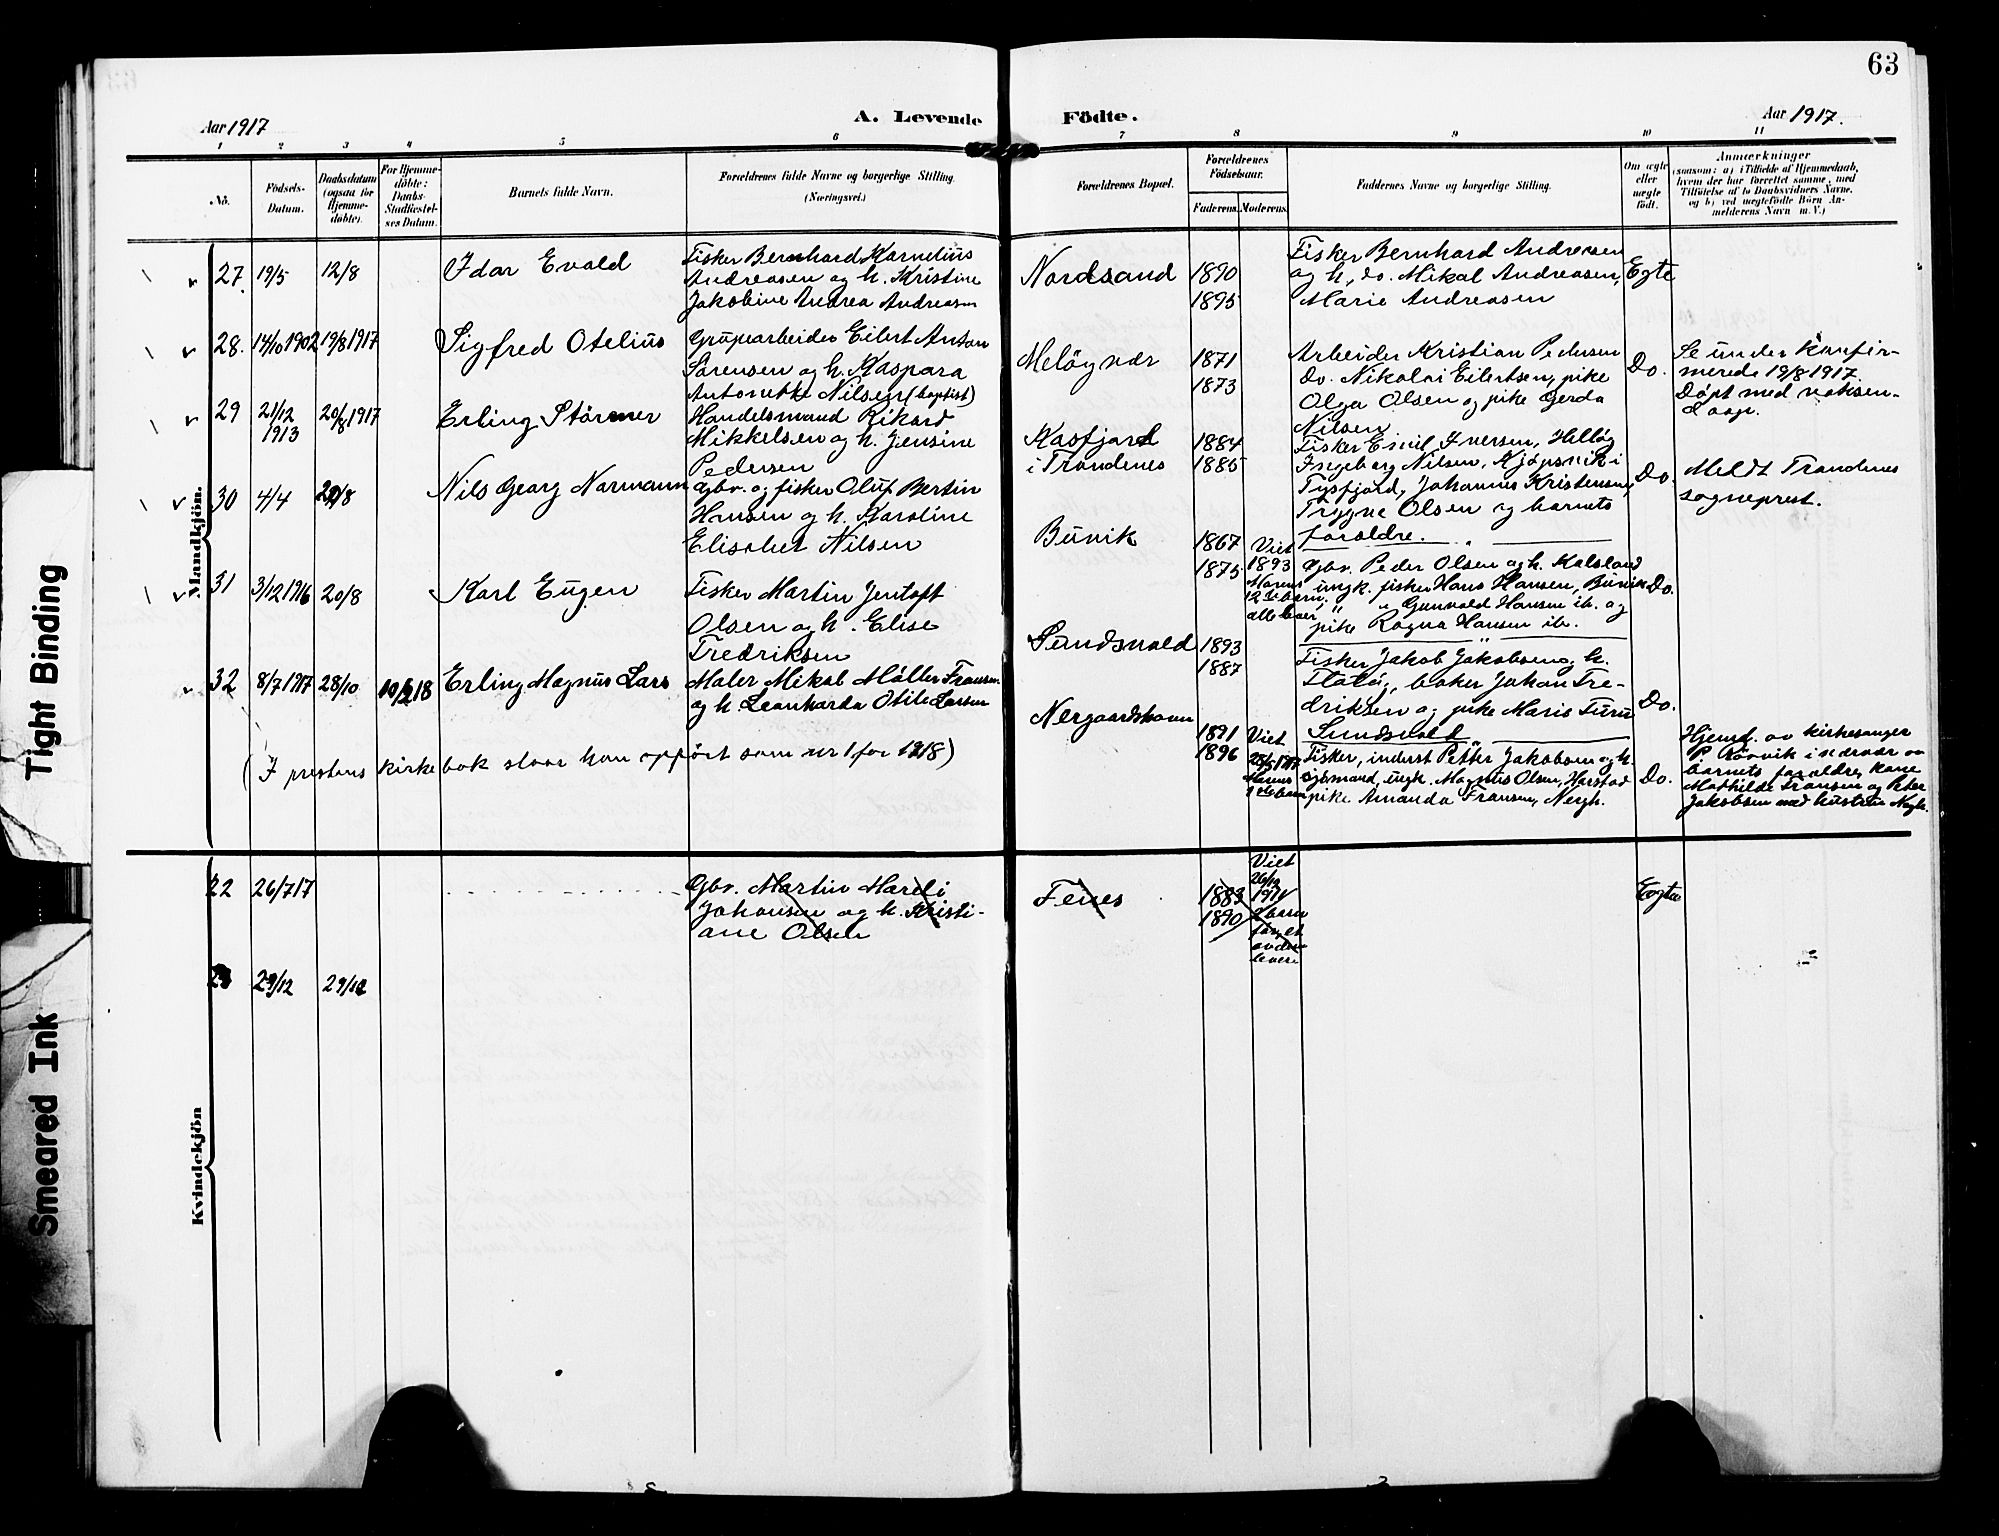 63
Aar 1917
A. Levende
Födte.
Aar 1917.
1 2 3 4 5 6 7 8 9 10 11
No.
Födsels-
Datum.
Daabsdatum
(ogsaa for
Hjemme-
döbte).
For Hjemme-
döbte:
Daabs-
Stadfæstel-
ses Datum.
Barnets fulde Navn.
Forældrenes fulde Navne og borgerlige Stilling.
(Næringsvei.)
Forældrenes Bopæl.
Forældrenes
Födselsaar.
Faderens. Moderens.
Faddernes Navne og borgerlige Stilling.
Om ægte
eller
uægte
födt.
Anmærkninger
(saasom: a) i Tilfælde af Hjemmedaab,
hvem der har forrettet samme, med
Tilföielse af to Daabsvidners Navne,
og b) ved uægtefödte Börn An-
melderens Navn m. V.)
Mandkjön.
27. 19/5 12/8 Idar Evald
Fisker Bernhard Kornelius
Andreasen og h. Kristine
Jakobine Andrea Andreasen
Nordsand 1890
1895
Fisker Bernhard Andreasen
og h, do. Mikal Andreasen,
Marie Andreasen
Egte
28. 14/10 1902 19/8 1917 Sigfred Otelius
Grupearbeider Eilert Anton
Sørensen og h. Kaspara
Antonette Nilsen (baptist)
Meløyvær 1871
1873
Arbeider Kristian Pedersen
do. Nikolai Eilertsen, pike
Olga Olsen og pike Gerda
Nilsen
Do.
Se under konfir-
merede 19/8 1917
Døpt med voksen-
daap.
29 21/12
1913 20/8 1917 Erling Størmer
Handelsmand Rikard
Mikkelsen og h. Jensine
Pedersen
Kasfjord
i Trondenes
1884
1885
Fisker Emil Iversen, Helløy
Ingeborg Nilsen, Kjøpsvik i
Tysfjord, Johannes Kristensen,
Trygve Olsen og barnets
foreldre.
Do.
Meldt Trondenes
sogneprest.
30 4/4 /8 Nils Georg Normann
Gbr. og fisker Oluf Bertin
Hansen og h. Karoline
Elisabet Nilsen
Buvik 1867
1875
Viet
1893
Morens
12te barn,
alle lever
Gbr. Peder Olsen og h. Kalsland
ungk. fisker Hans Hansen, Buvik
" " Gunvald Hansen ib. og
pike Ragna Hansen ib.
Do.
31 3/12 1916 20/8 Karl Eugen
Fisker Martin Jentoft
Olsen og h. Elise
Fredriksen
Sundsvold 1893
1887
Fisker Jakob Jakobsen og h.
Flatøy, baker Johan Fre-
driksen og pike Marie Furu
Sundsvold
Do.
32 8/7 1917 28/10 18 Erling Magnus Lars
Maler Mikal Møller Fransen
og h. Leonharda Otilie Larsen
Nergaardshavn
1891
1896
Viet
1917
Morens
1ste barn
Fisker, inderst Petter Jakobsen og h.
ungk. Magnus Olsen, Harstad
pike Amanda Fransen, Nergh.
Do.
Hjemd. av kirkesanger
P. Rørvik i nærvær av
barnets foreldre, kone
Mathilde Fransen og Peter
Jakobsen med hustru Nergh.
(I prestens kirkebok staar han opført som nr 1 for 1918)
Kvindekjön
22 26/7 17
Gbr. Martin Mareli
Johansen og h. Kristi-
ane Olsen
Fenes
1883
1890
Viet
26/12
1911
2 barn
før, et
av dem
lever
Egte
23 29/12 29/12
Tight Binding
Smeared Ink